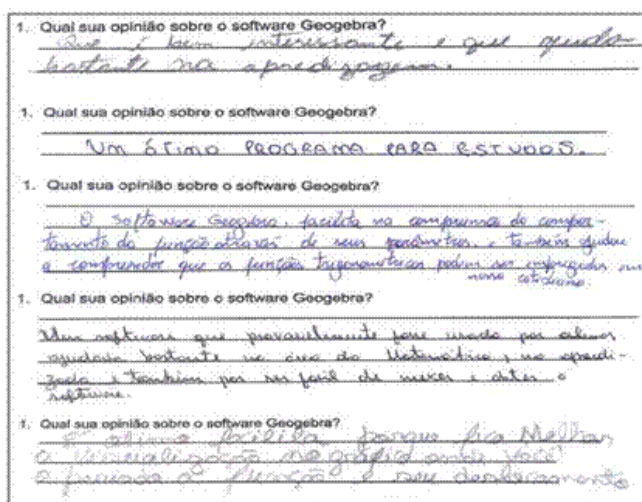 1. Qual sua opinião sobre o software Geogebra?
Que é bem interessante e que ajuda
bastante na apredizagem.
1. Qual sua opinião sobre o software Geogebra?
Um ótimo PROGRAMA PARA ESTUDOS.
1. Qual sua opinião sobre o software Geogebra?
O software Geogebra, facilita na compreensão do compor-
tamento da função através de seus parâmetros, e também ajudou
a compreender que as funções trigonométricas podem ser empregadas em
nosso cotidiano.
1. Qual sua opinião sobre o software Geogebra?
Um software que provavelmente fosse usado por alunos
ajudaria bastante na área da Matemática, no apredi-
zado e também por ser fácil de mexer e obter o
software.
1. Qual sua opinião sobre o software Geogebra?
É ótimo facilita porque fica Melhor
a visualização no gráfico onde você
a função e seu deslocamento